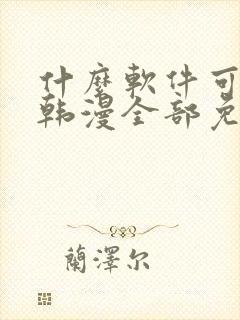 什麼軟件可
韩漫全部免
蘭澤尔